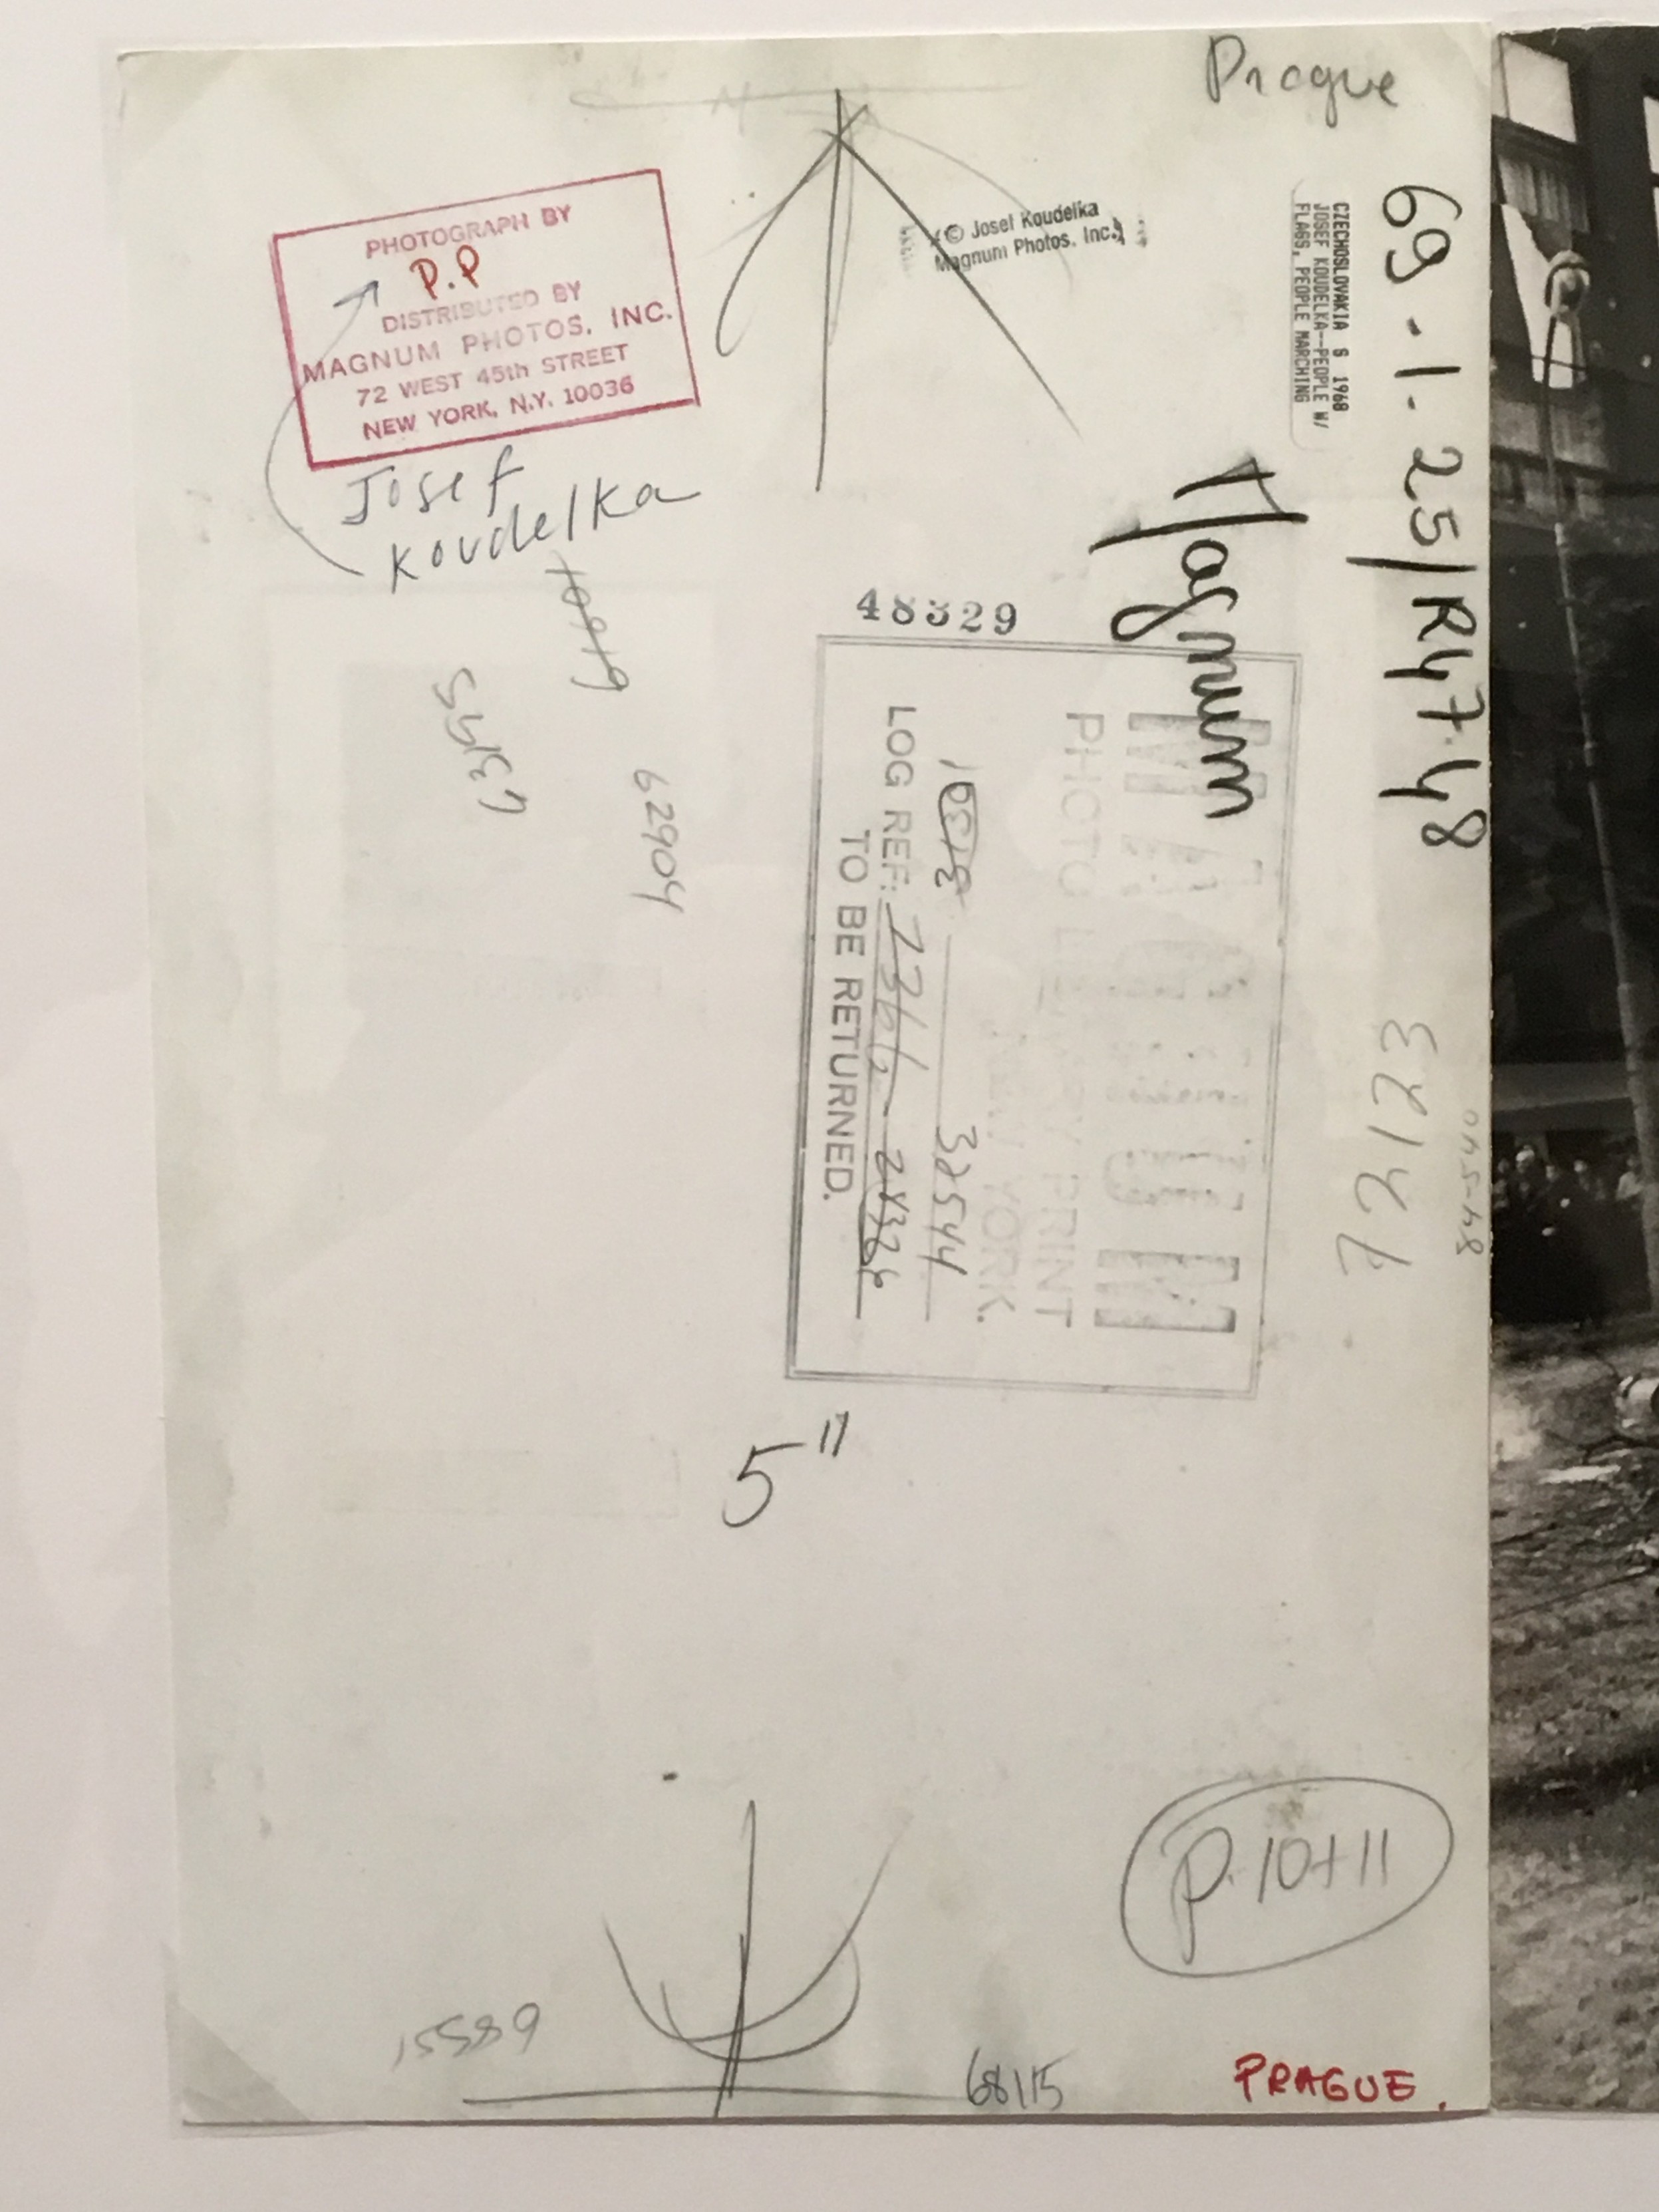 Prague
PHOTOGRAPH BY
P.P
DISTRIBUTED BY
MAGNUM PHOTOS, INC.
72 WEST 45th STREET
NEW YORK, N.Y. 10036
Josef
Koudelka
© Josef Koudelka
Magnum Photos, Inc.
CZECHOSLOVAKIA S 1968
JOSEF KOUDELKA--PEOPLE W/
FLAGS, PEOPLE MARCHING
69-1-25/R47-48
Magnum
48329
MAGNUM
PHOTO LIBRARY PRINT
NEW YORK.
32544
LOG REF:
TO BE RETURNED.
62904
5"
p. 10+11
15589
68115
PRAGUE.